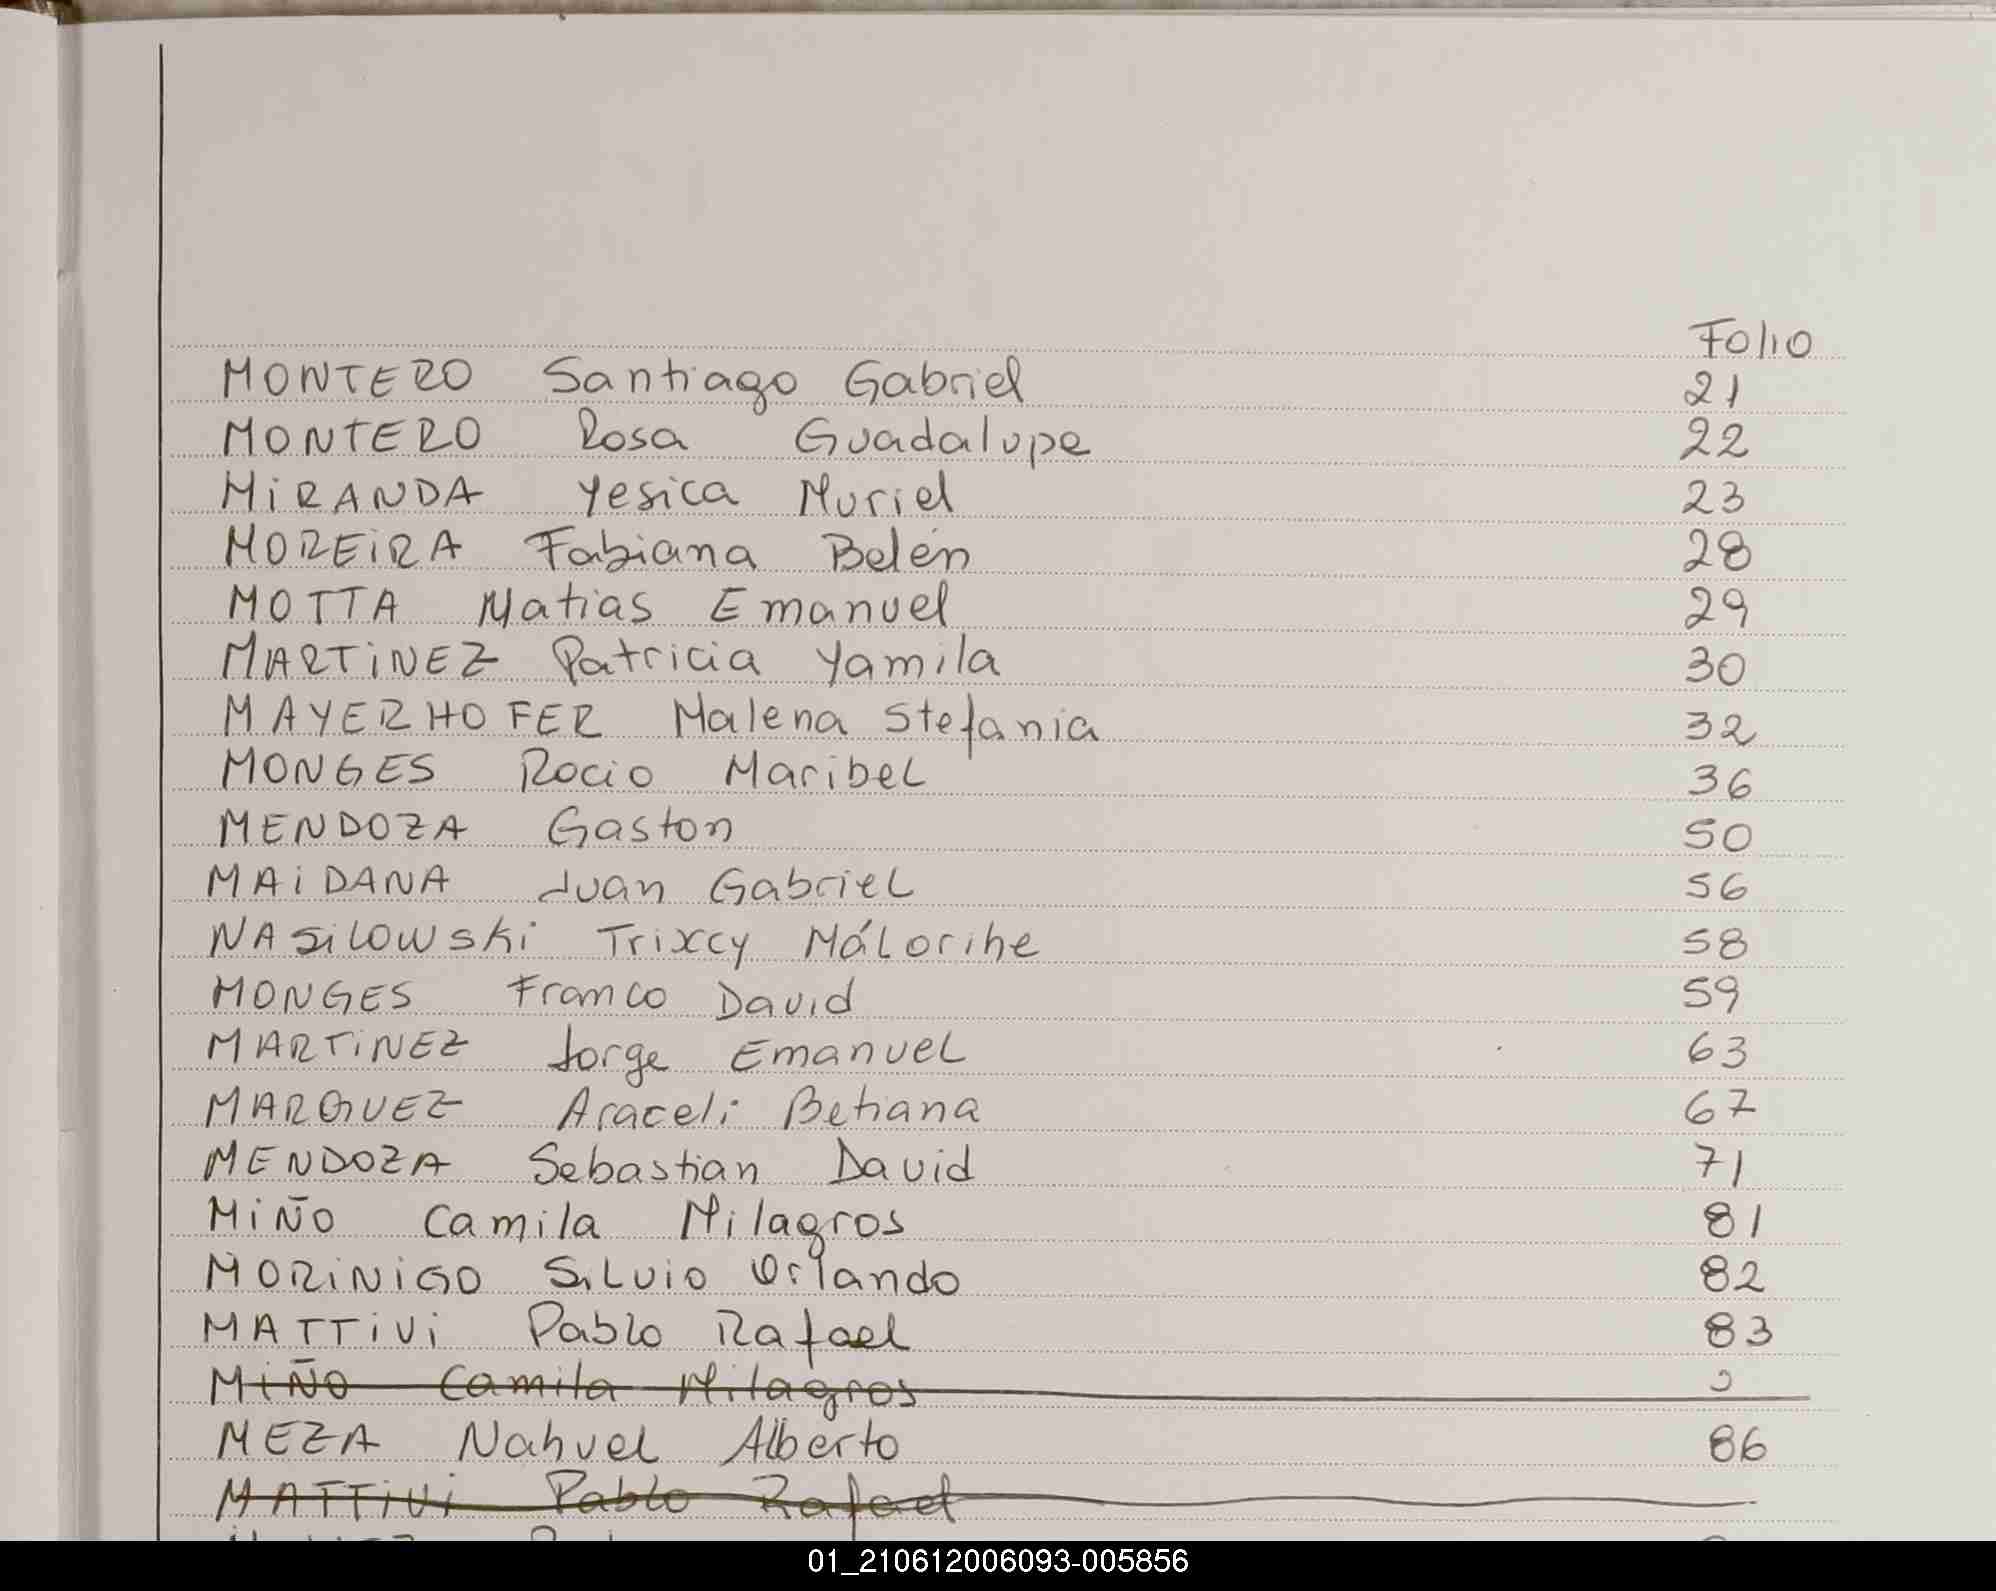 Folio
MONTERO Santiago Gabriel 21
MONTERO Rosa Guadalupe 22
MiRANDA Yesica Muriel 23
MOREiRA Fabiana Belén 28
MOTTA Matias Emanuel 29
MARTiNEZ Patricia Yamila 30
MAYERHOFER Malena Stefania 32
MONGES Rocio Maribel 36
MENDOZA Gaston 50
MAiDANA Juan Gabriel 56
NASiLOWSki Trixcy Málorihe 58
MONGES Franco David 59
MARTiNEZ Jorge Emanuel 63
MARQUEZ Araceli Betiana 67
MENDOZA Sebastian David 71
MiÑO Camila Milagros 81
MORiNiGO Silvio Orlando 82
MATTiVi Pablo Rafael 83
MiÑO Camila Milagros
MEZA Nahuel Alberto 86
MATTiVi Pablo Rafael
01_210612006093-005856